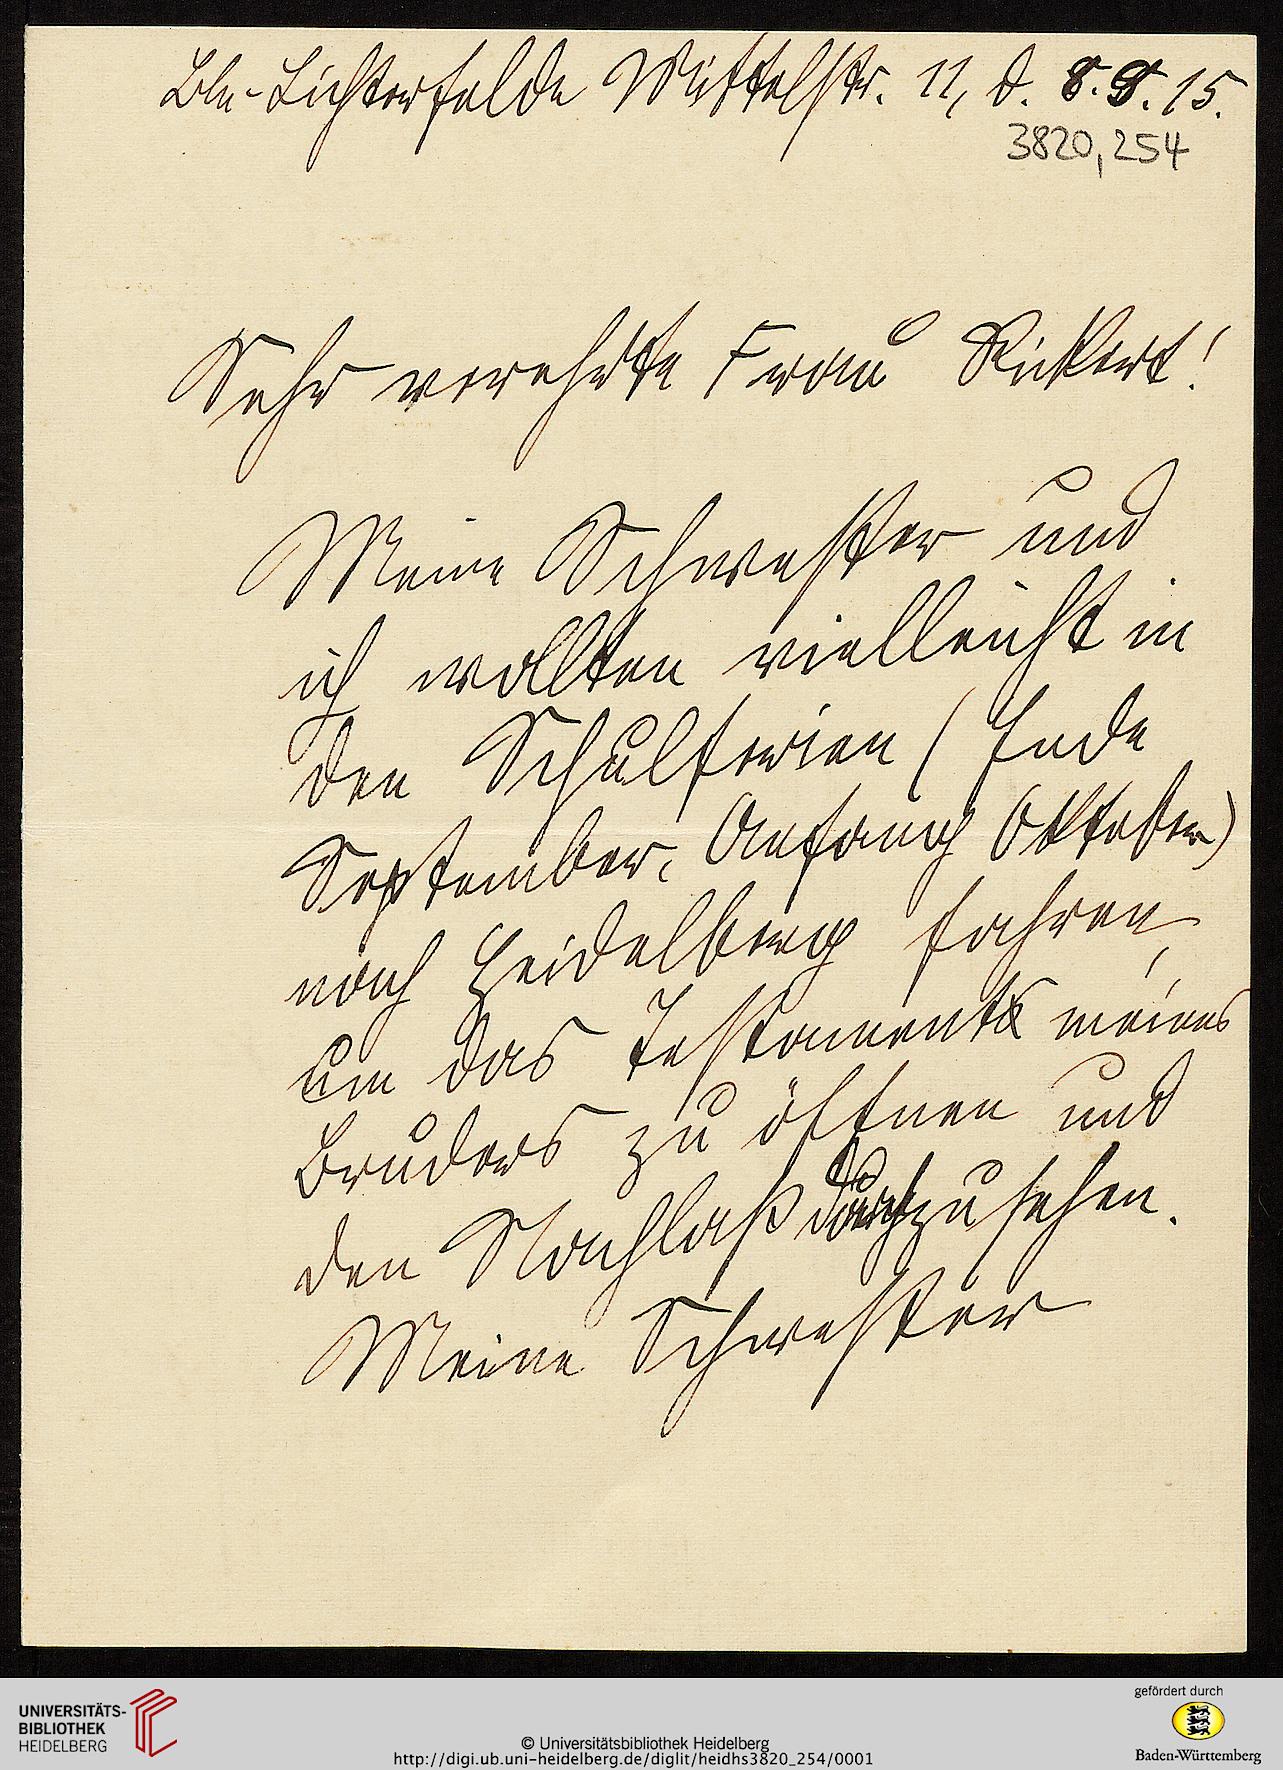 Bln-Lichterfelde Mittelstr. 11, d. 8.9.15.
3820,254
Sehr verehrte Frau Rickert!
Meine Schwester und
ich wollten vielleicht in
den Schulferien (Ende
September, Anfang Oktober)
nach Heidelberg fahren,
um das Testament meines
Bruders zu öffnen und
den Nachlaß durchzusehen.
Meine Schwester
UNIVERSITÄTS-
BIBLIOTHEK
HEIDELBERG
© Universitätsbibliothek Heidelberg
http://digi.ub.uni-heidelberg.de/diglit/heidhs3820_254/0001
gefördert durch
Baden-Württemberg